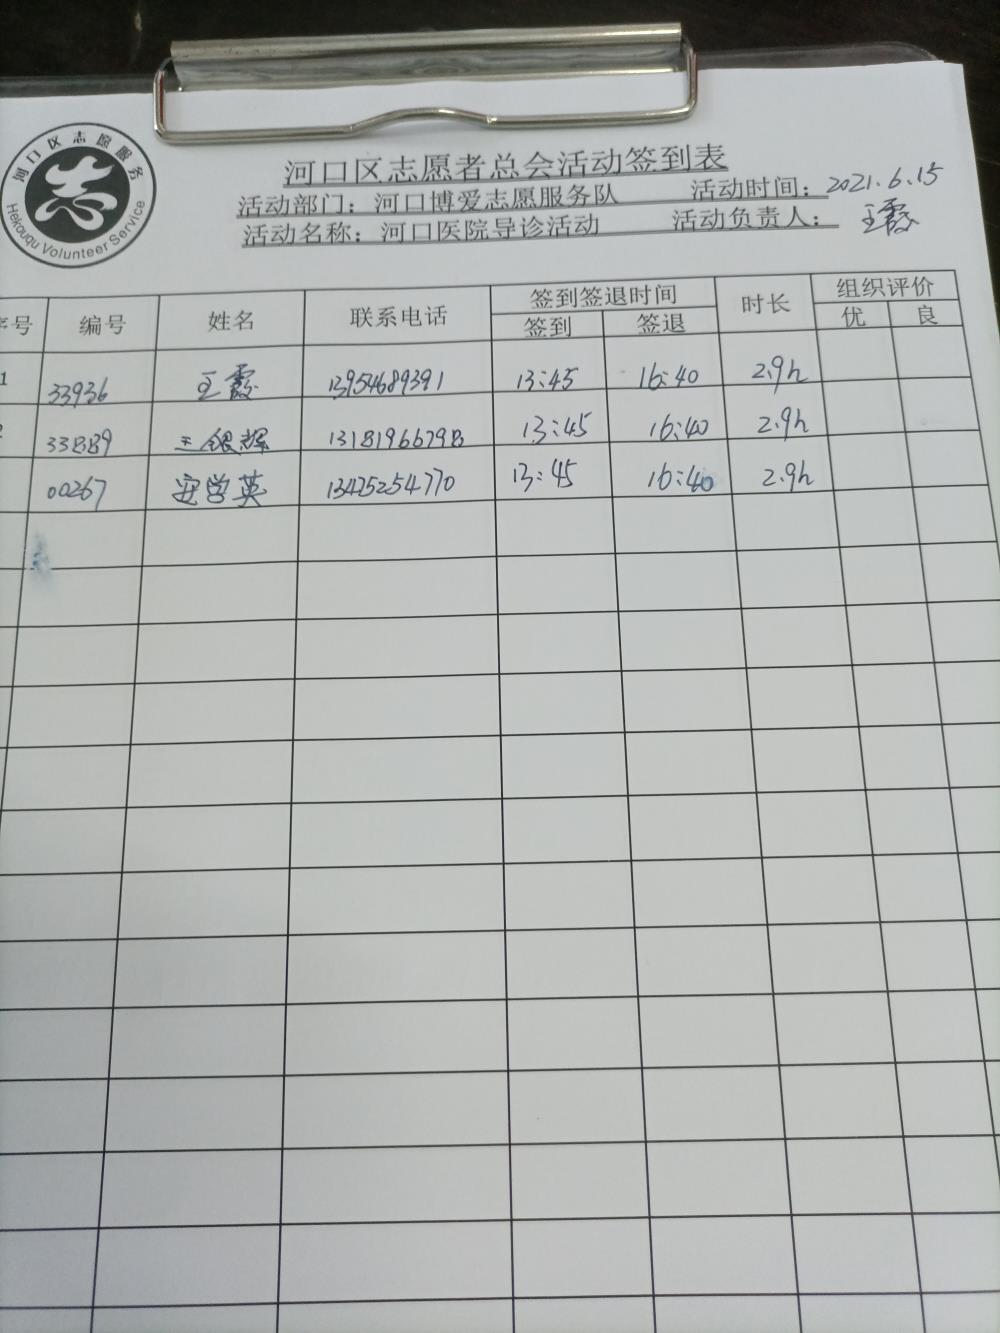 河口区志愿服务
Hekouqu Volunteer Service
志
河口区志愿者总会活动签到表
活动部门：河口博爱志愿服务队 活动时间：2021.6.15
活动名称：河口医院导诊活动 活动负责人：王霞
序号 编号 姓名 联系电话 签到签退时间 时长 组织评价
签到 签退 优 良
1 33936 王霞 13954689391 13:45 16:40 2.9h
2 33889 王银辉 13181966798 13:45 16:40 2.9h
00267 安学英 13475254770 13:45 16:40 2.9h